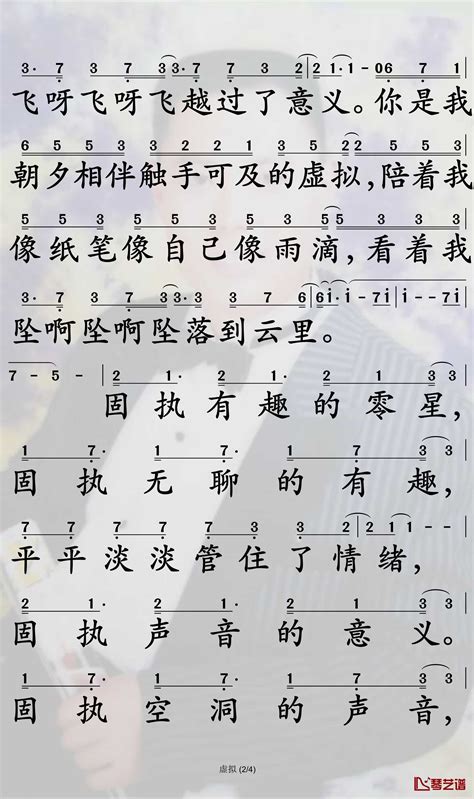 3· 7 3· 7 3· 7 7 3 2 | 2 1 1· - 0 6 7 1
飞呀飞呀飞越过了意义。你是我
6 5 5 3 2 2 1 5 5 3 3 2 5 3 2
朝夕相伴触手可及的虚拟,陪着我
像纸笔像自己像雨滴,看着我
坠啊坠啊坠落到云里。
7 - 5 - | 2 1· 2 1· 2 1 3 3
固执有趣的零星,
1 7· 1 7· 1 7 3 3
固执无聊的有趣,
平平淡淡管住了情绪,
2 1· 2 1· 2 1 3 3
固执声音的意义。
1 7· 1 7· 1 7 3 3
固执空洞的声音,
虚拟 (2/4)
琴艺谱